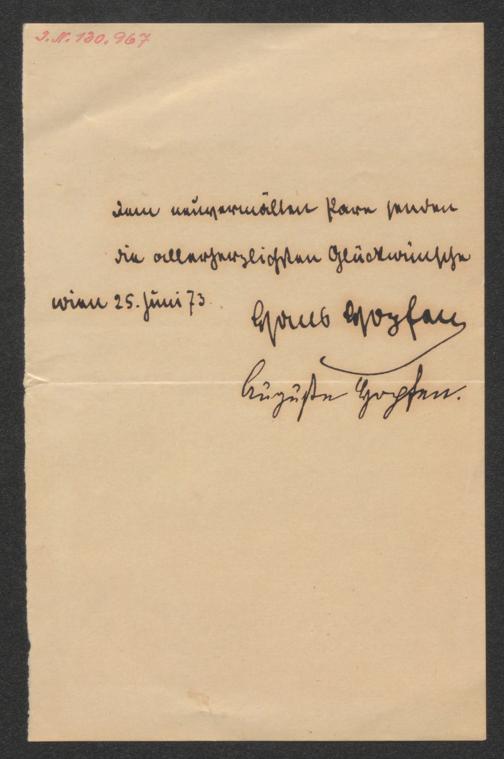 I.N. 130.967
dem neuvermälten Pare senden
die allerherzlichsten Glückwünsche
wien 25. Juni 73.
Hans Hopfen
Auguste Hopfen.